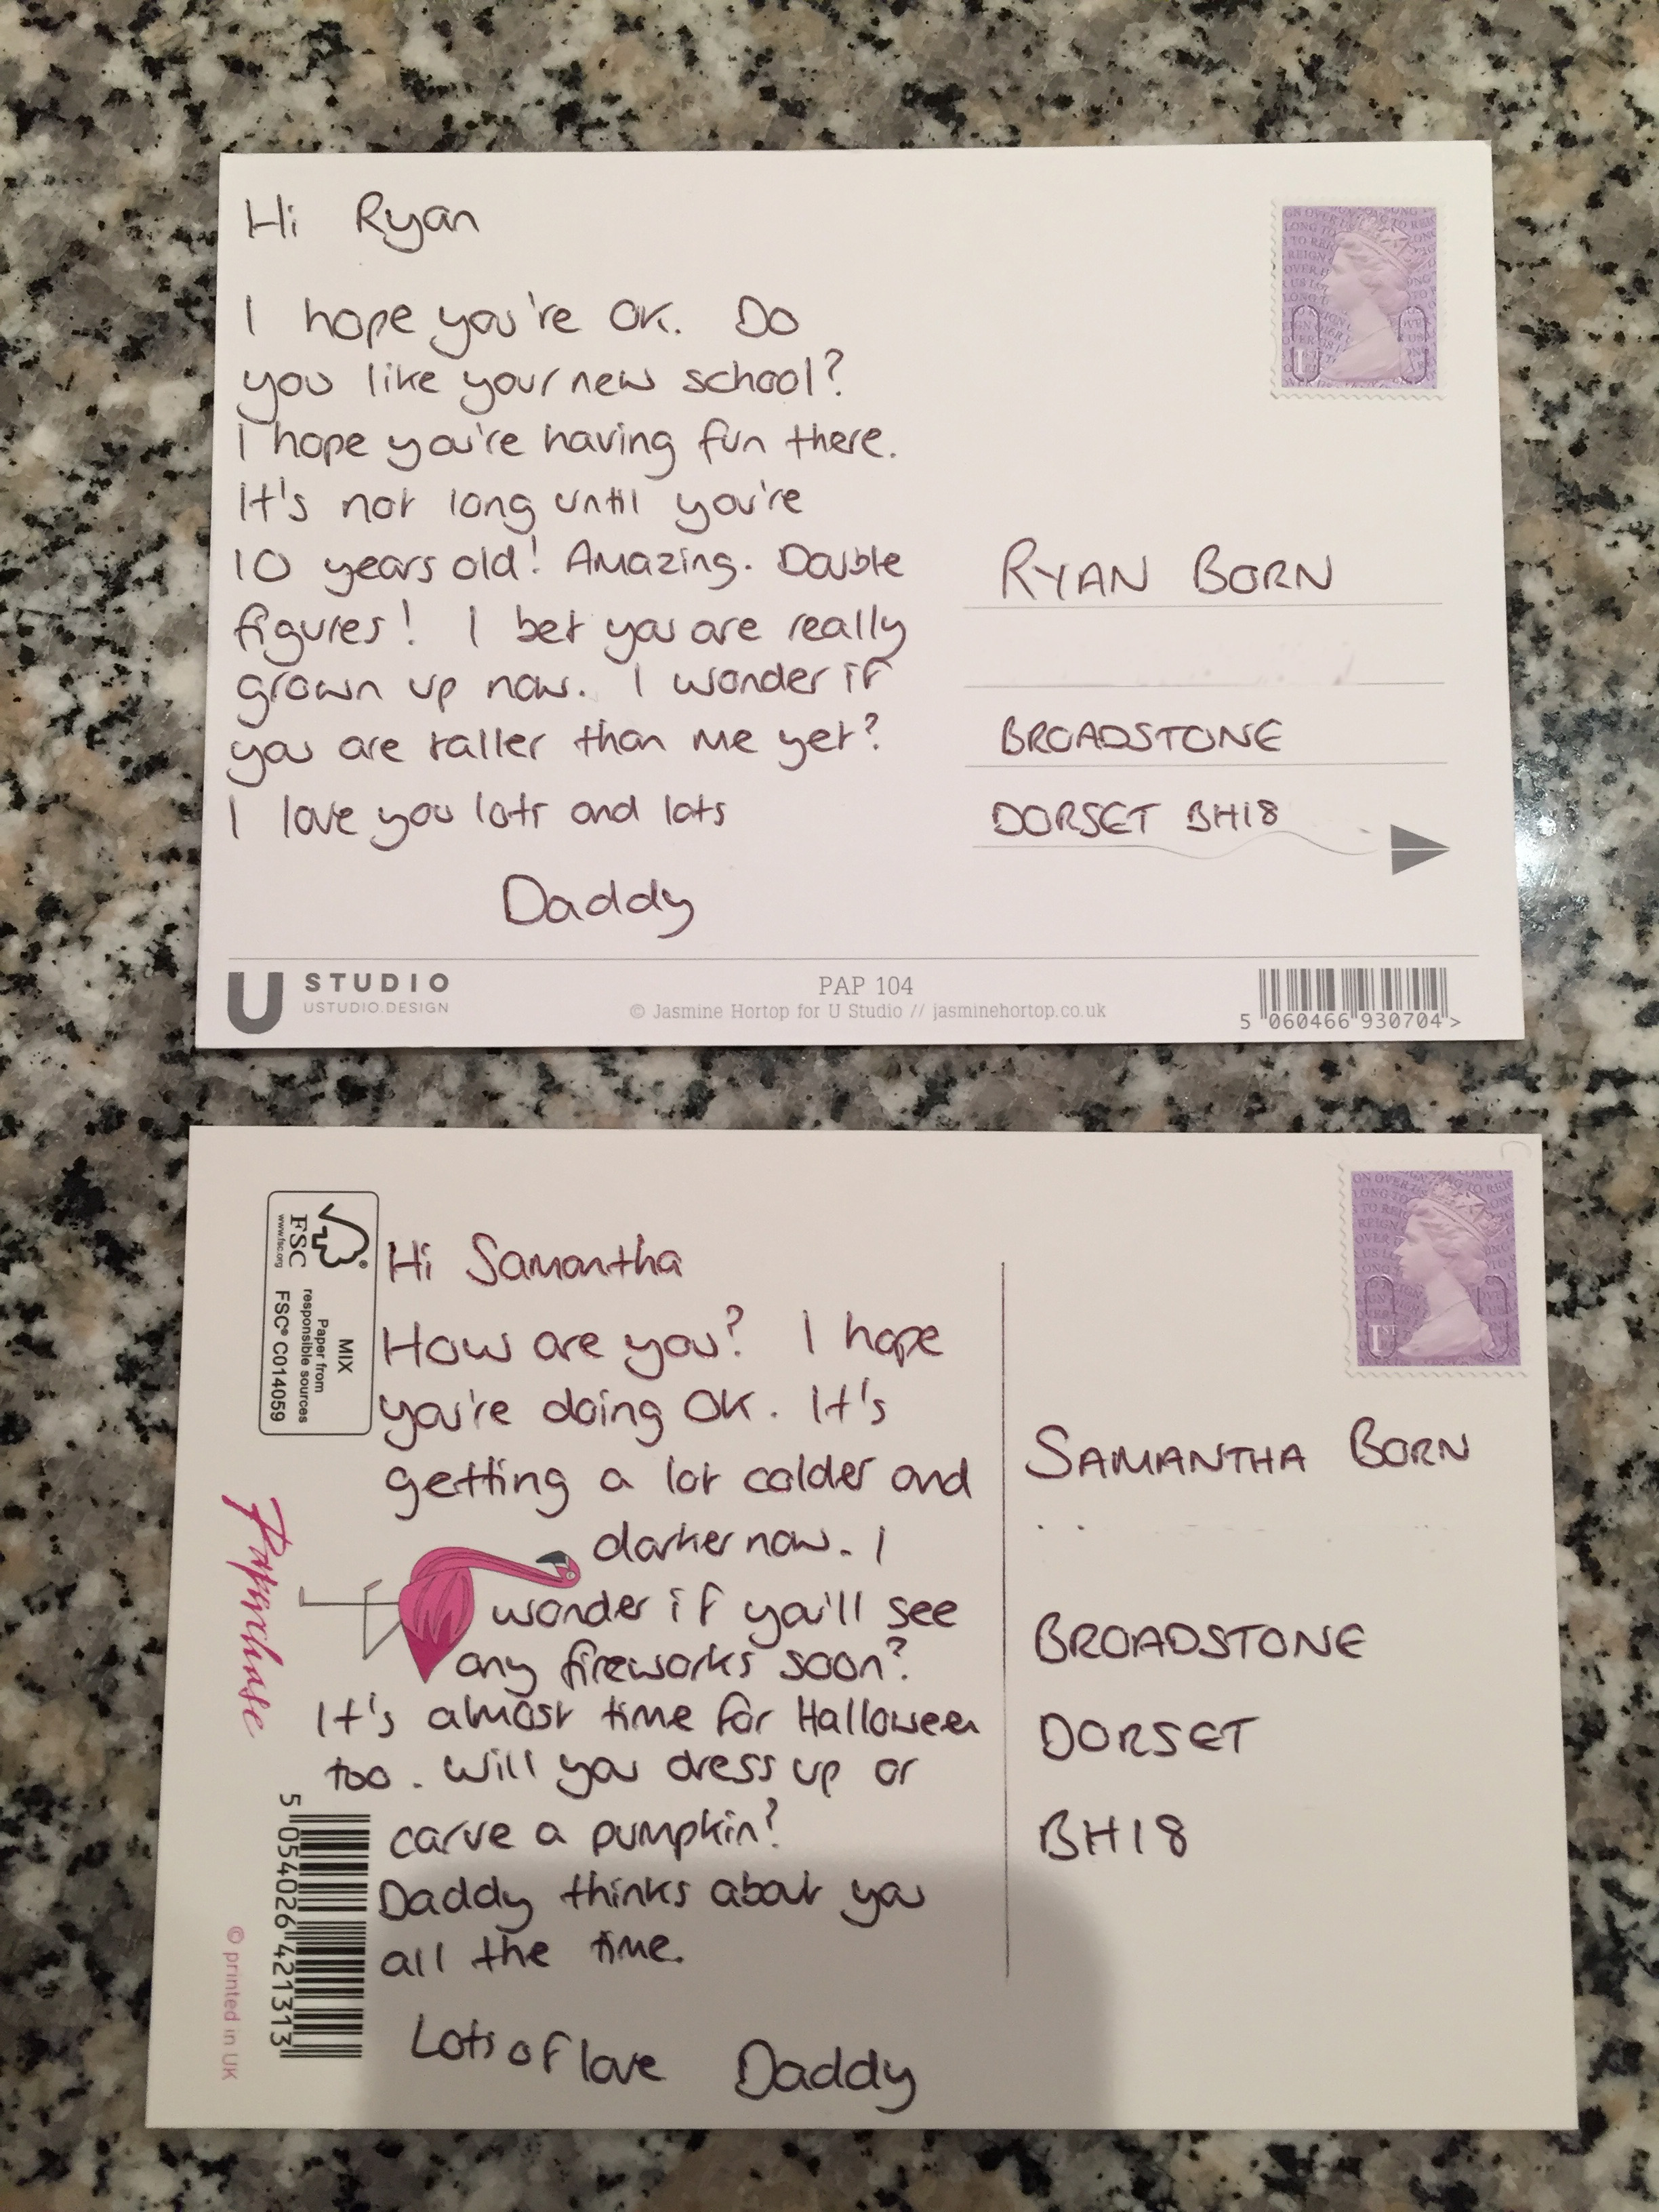 Hi Ryan
I hope you're OK. Do
you like your new school?
I hope you're having fun there.
It's not long until you're
10 years old! Amazing. Double
figures! I bet you are really
grown up now. I wonder if
you are taller than me yet?
I love you lots and lots
Daddy
RYAN BORN
BROADSTONE
DORSET BH18
U STUDIO
USTUDIO.DESIGN
PAP 104
© Jasmine Hortop for U Studio // jasminehortop.co.uk
5 060466 930704 >
FSC
www.fsc.org
MIX
Paper from
responsible sources
FSC® C014059
Hi Samantha
How are you? I hope
you're doing OK. It's
getting a lot colder and
darker now. I
wonder if you'll see
any fireworks soon?
It's almost time for Halloween
too. Will you dress up or
carve a pumpkin?
Daddy thinks about you
all the time.
Lots of love Daddy
SAMANTHA BORN
BROADSTONE
DORSET
BH18
Paperchase
5 054026 421313
© printed in UK